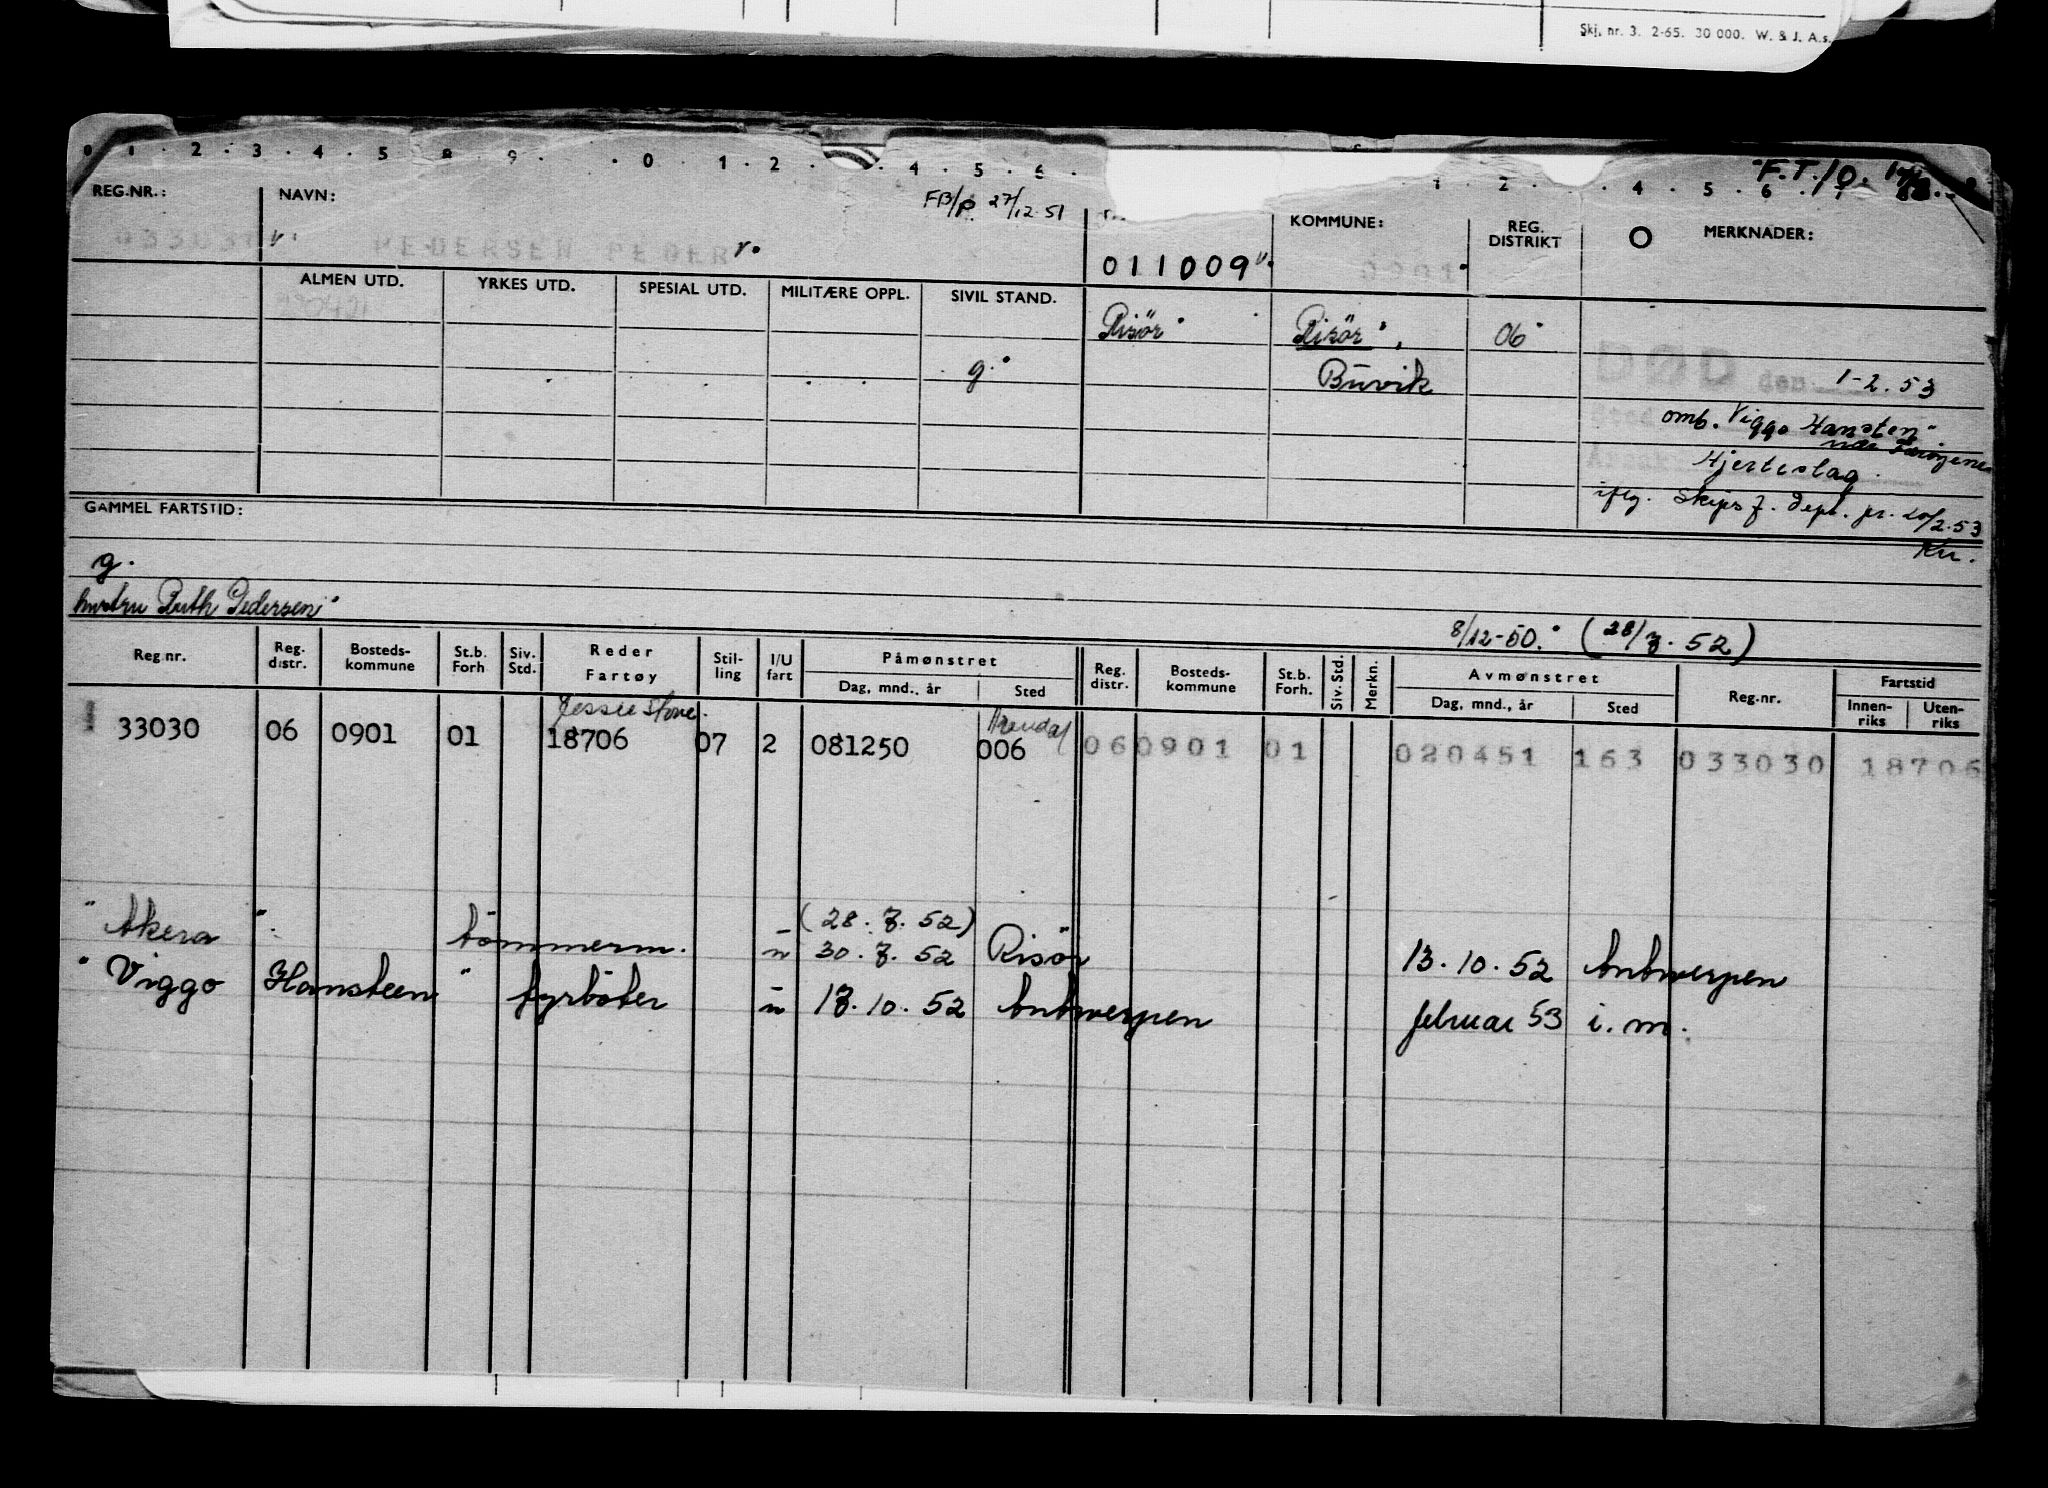 Skj. nr. 3. 2-65. 30 000. W. & J. A.s.
0 1 2 3 4 5 8 9 0 1 2 4 5 6 1 2 4 5 6
F.T. 10.
REG.NR.: NAVN: FB/P. 27/12.51 KOMMUNE: REG. DISTRIKT MERKNADER:
PEDERSEN PEDER 011009 0901
ALMEN UTD. YRKES UTD. SPESIAL UTD. MILITÆRE OPPL. SIVIL STAND.
Risör Risör 06
g. Buvik DØD den 1-2.53
omb. "Viggo Hansten"
nær Færöyene
Hjerteslag.
iflg. Skipsf. dept. pr. 20/2.53
GAMMEL FARTSTID:
g.
hustru Ruth Pedersen
8/12-50. (28/7.52)
Reg.nr. Reg. distr. Bosteds-kommune St.b. Forh Siv. Std. Reder Fartøy Stil-ling I/U fart Påmønstret Dag, mnd., år Sted Reg. distr. Bosteds-kommune St.b. Forh. Siv. Std. Merkn. Avmønstret Dag, mnd., år Sted Reg.nr. Fartstid Innen-riks Uten-riks
Jessie Stove. Arendal
33030 06 0901 01 18706 07 2 081250 006 06 0901 01 020451 163 033030 18706
(28.7.52)
"Akera" tömmerm. u 30.7.52 Risör 13.10.52 Antwerpen
"Viggo Hansteen" fyrböter u 17.10.52 Antwerpen februar 53 i.m.